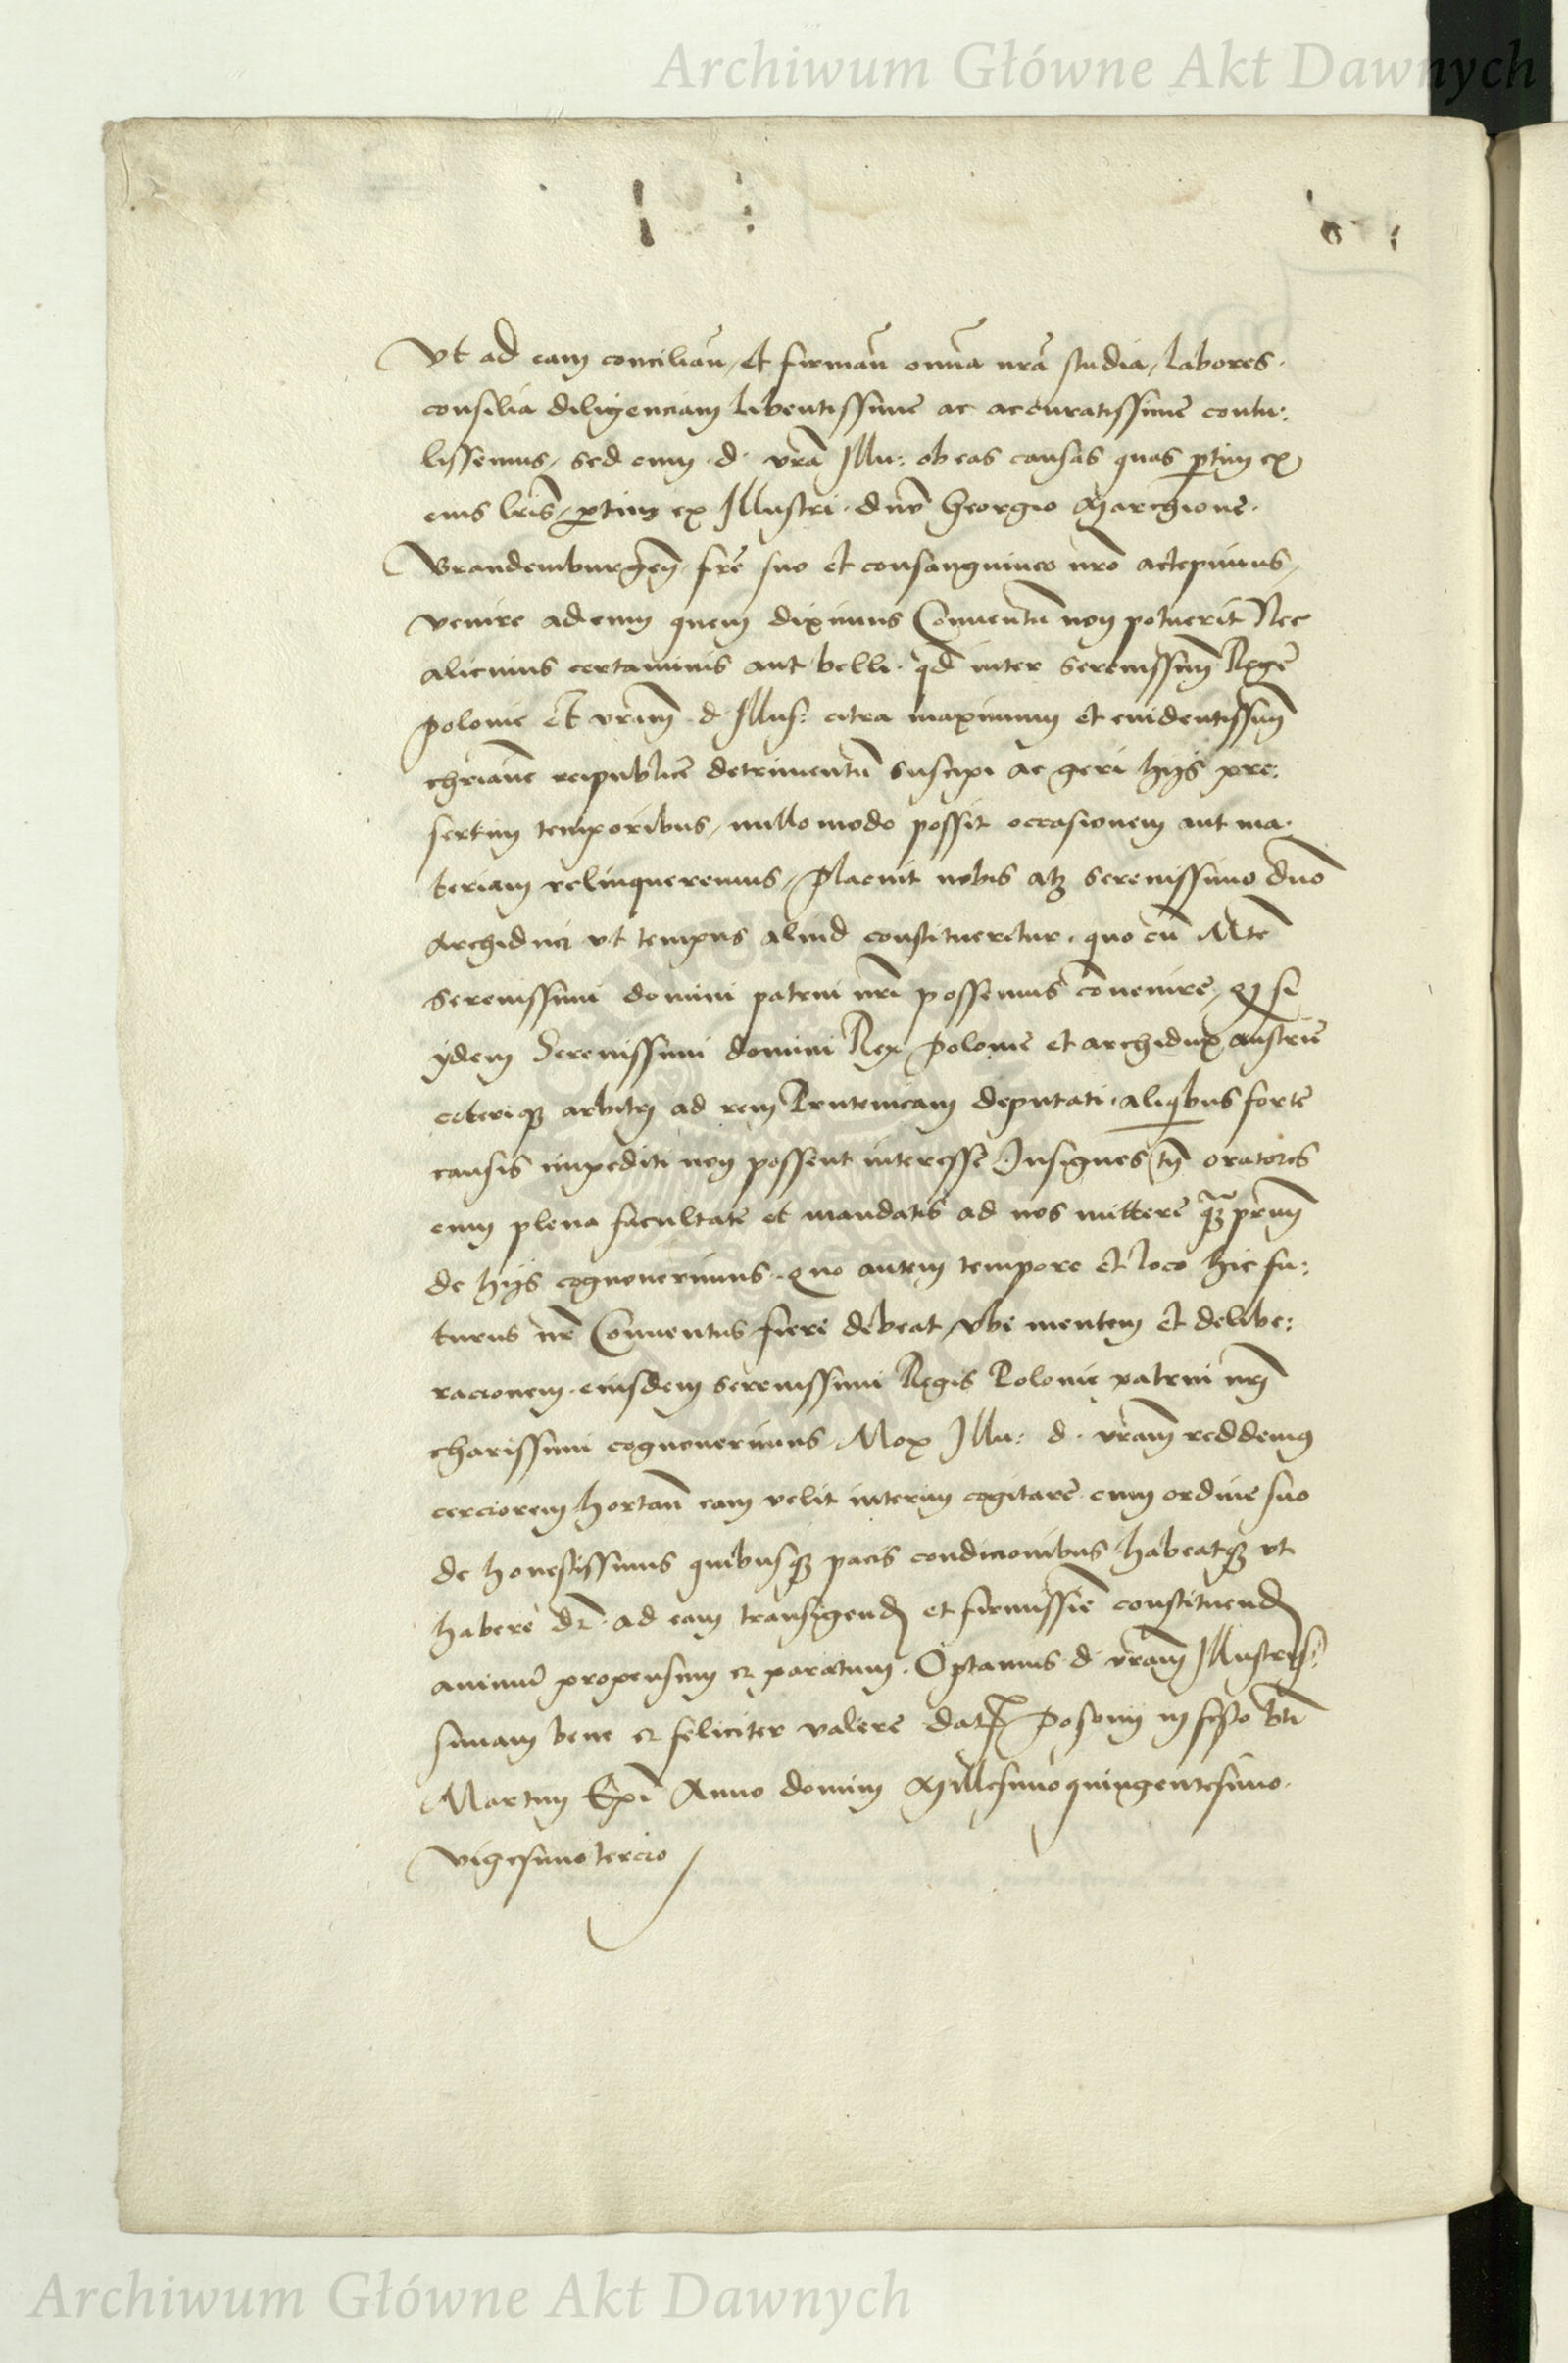 Archiwum Główne Akt Dawnych
Vt ad eam concilian̄, et firman̄ om̄ia nr̄a studia, labores.
consilia diligenciam libentissime ac accuratissime contu:
lissemus, sed cum .d. vr̄a Illu: ob eas causas quas ꝑtim ex
eius lr̄is, ꝑtim ex Illustri. dn̄o Georgio Marchione.
Brandemburgen̄. fr̄e suo et consanguineo nr̄o accepimus,
venire ad eum quem diximus Conuentū non potuerit Nec
alicuius certaminis aut belli. qd̄ inter serenissimū Regē
Polonie et vr̄am .d. Illus: citra maximum et euidentissimū
chr̄iane reipublice detrimentū suscipi ac geri hijs pre:
sertim temporibus, nullo modo possit occasionem aut ma:
teriam relinqueremus, Placuit nobis atqꝫ serenissimo dn̄o
Archiduci vt tempus aliud constitueretur. quo cū Mte
serenissimi domini patrui nr̄i possemus cōuenire, Qȝ si
ydem Serenissimi domini Rex Polonie et archidux austrie
ceteriqꝫ arbitrj ad rem Prutenicam deputati. aliqͥbus forte
causis impediti non possent interesse Insignes tn̄ oratores
cum plena facultate et mandatis ad nos mittere qͣꝫ primū
de hijs cognouerimus. Quo autem tempore et loco hic fu:
turus nr̄ Conuentus fieri debeat, vbi mentem et delibe:
racionem. eiusdem serenissimi Regis Polonie patrui nr̄j
charissimi cognouerimus. Mox Illu: d. vr̄am reddemus
cerciorem hortan̄ eam velit interim cogitare. cum ordine suo
de honestissimis quibusqꝫ pacis condicionibus habeatqꝫ vt
habere dr̄. ad eam transigend et firmissīe constituend
animū propensum et paratum. Optamus d. vr̄am Illustris:
simam bene et feliciter valere dat Posonij in festo bt̄i
Martini Ep̄i Anno domini Millesimoquingentesimo.
vigesimotercio
Archiwum Główne Akt Dawnych